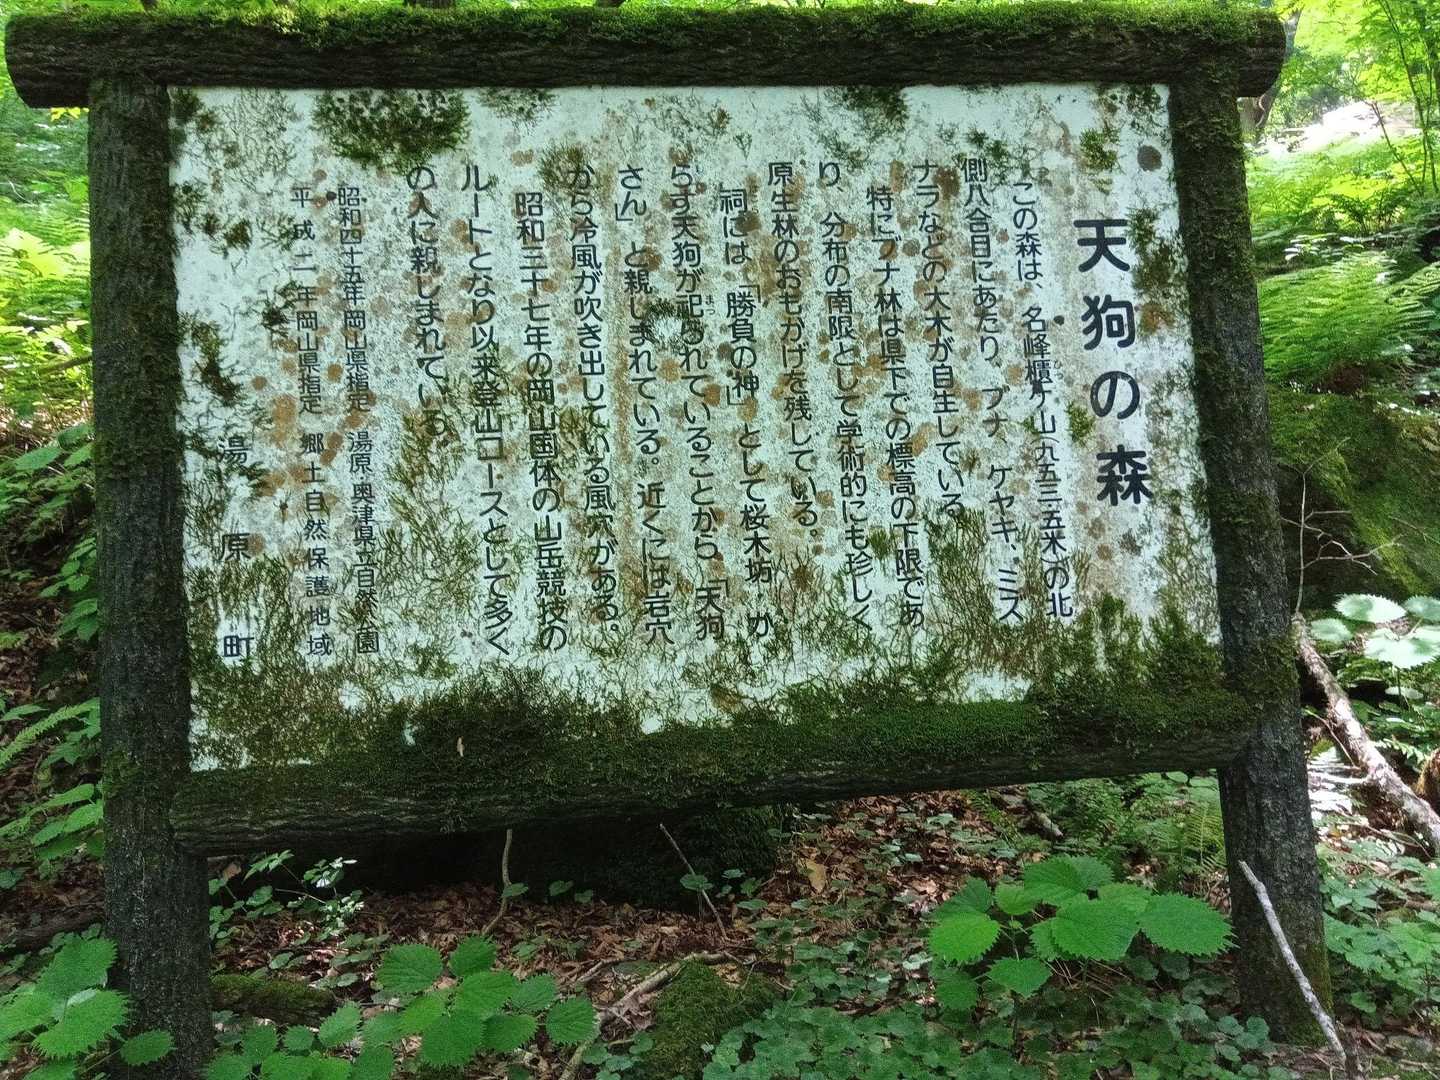 天狗の森
この森は、名峰櫃ケ山(九五三・五米)の北
側八合目にあたり、ブナ、ケヤキ、ミズ
ナラなどの大木が自生している。
特にブナ林は県下での標高の下限であ
り、分布の南限として学術的にも珍しく
原生林のおもかげを残している。
祠には、「勝負の神」として桜木坊
らす天狗が祀られていることから、「天狗
まつ
さん」と親しまれている。近くには岩穴
から冷風が吹き出している風穴がある。
昭和三十七年の岡山国体の山岳競技の
ルートとなり以来登山コースとして多く
の人に親しまれている。
昭和四十五年岡山県指定 湯原・奥津県立自然公園
平成二年岡山県指定 郷土自然保護地域
湯原町